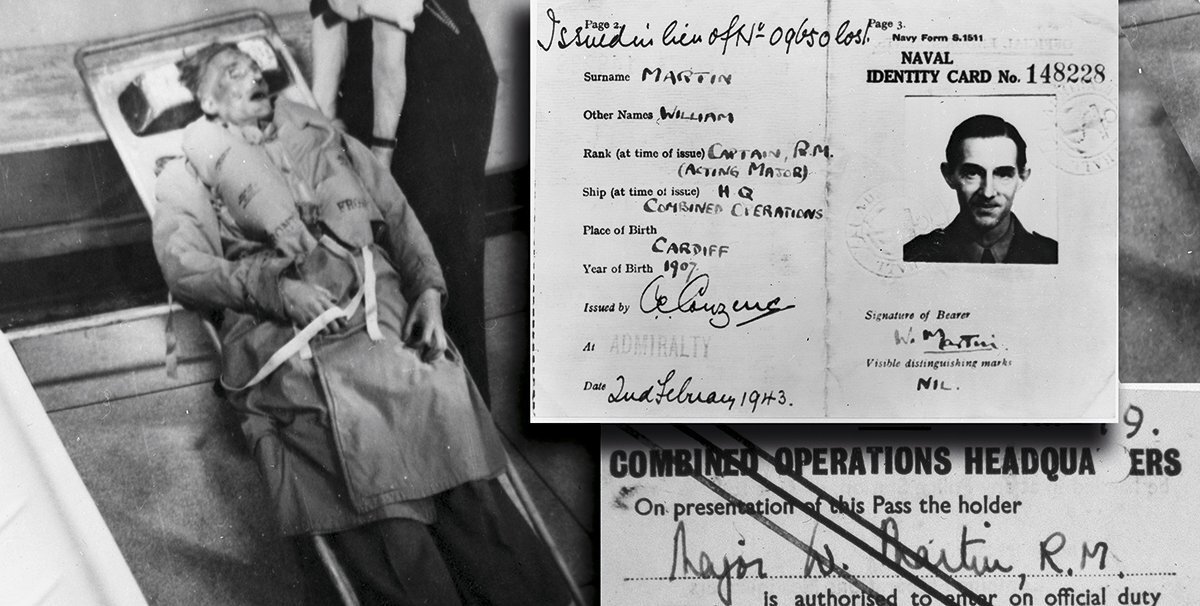 Page 2.
Issued in lieu of No 09650 lost.
Surname MARTIN
Other Names WILLIAM
Rank (at time of issue) CAPTAIN, R.M.
(ACTING MAJOR)
Ship (at time of issue) H Q
COMBINED OPERATIONS
Place of Birth
CARDIFF
Year of Birth 1907
Issued by
At ADMIRALTY
Date 2nd February 1943.
Page 3.
Navy Form S.1511
NAVAL
IDENTITY CARD No. 148228
Signature of Bearer
W. Martin.
Visible distinguishing marks
NIL.
9.
COMBINED OPERATIONS HEADQUA ERS
On presentation of this Pass the holder
Major W. Martin, R.M.
is authorised to enter on official duty